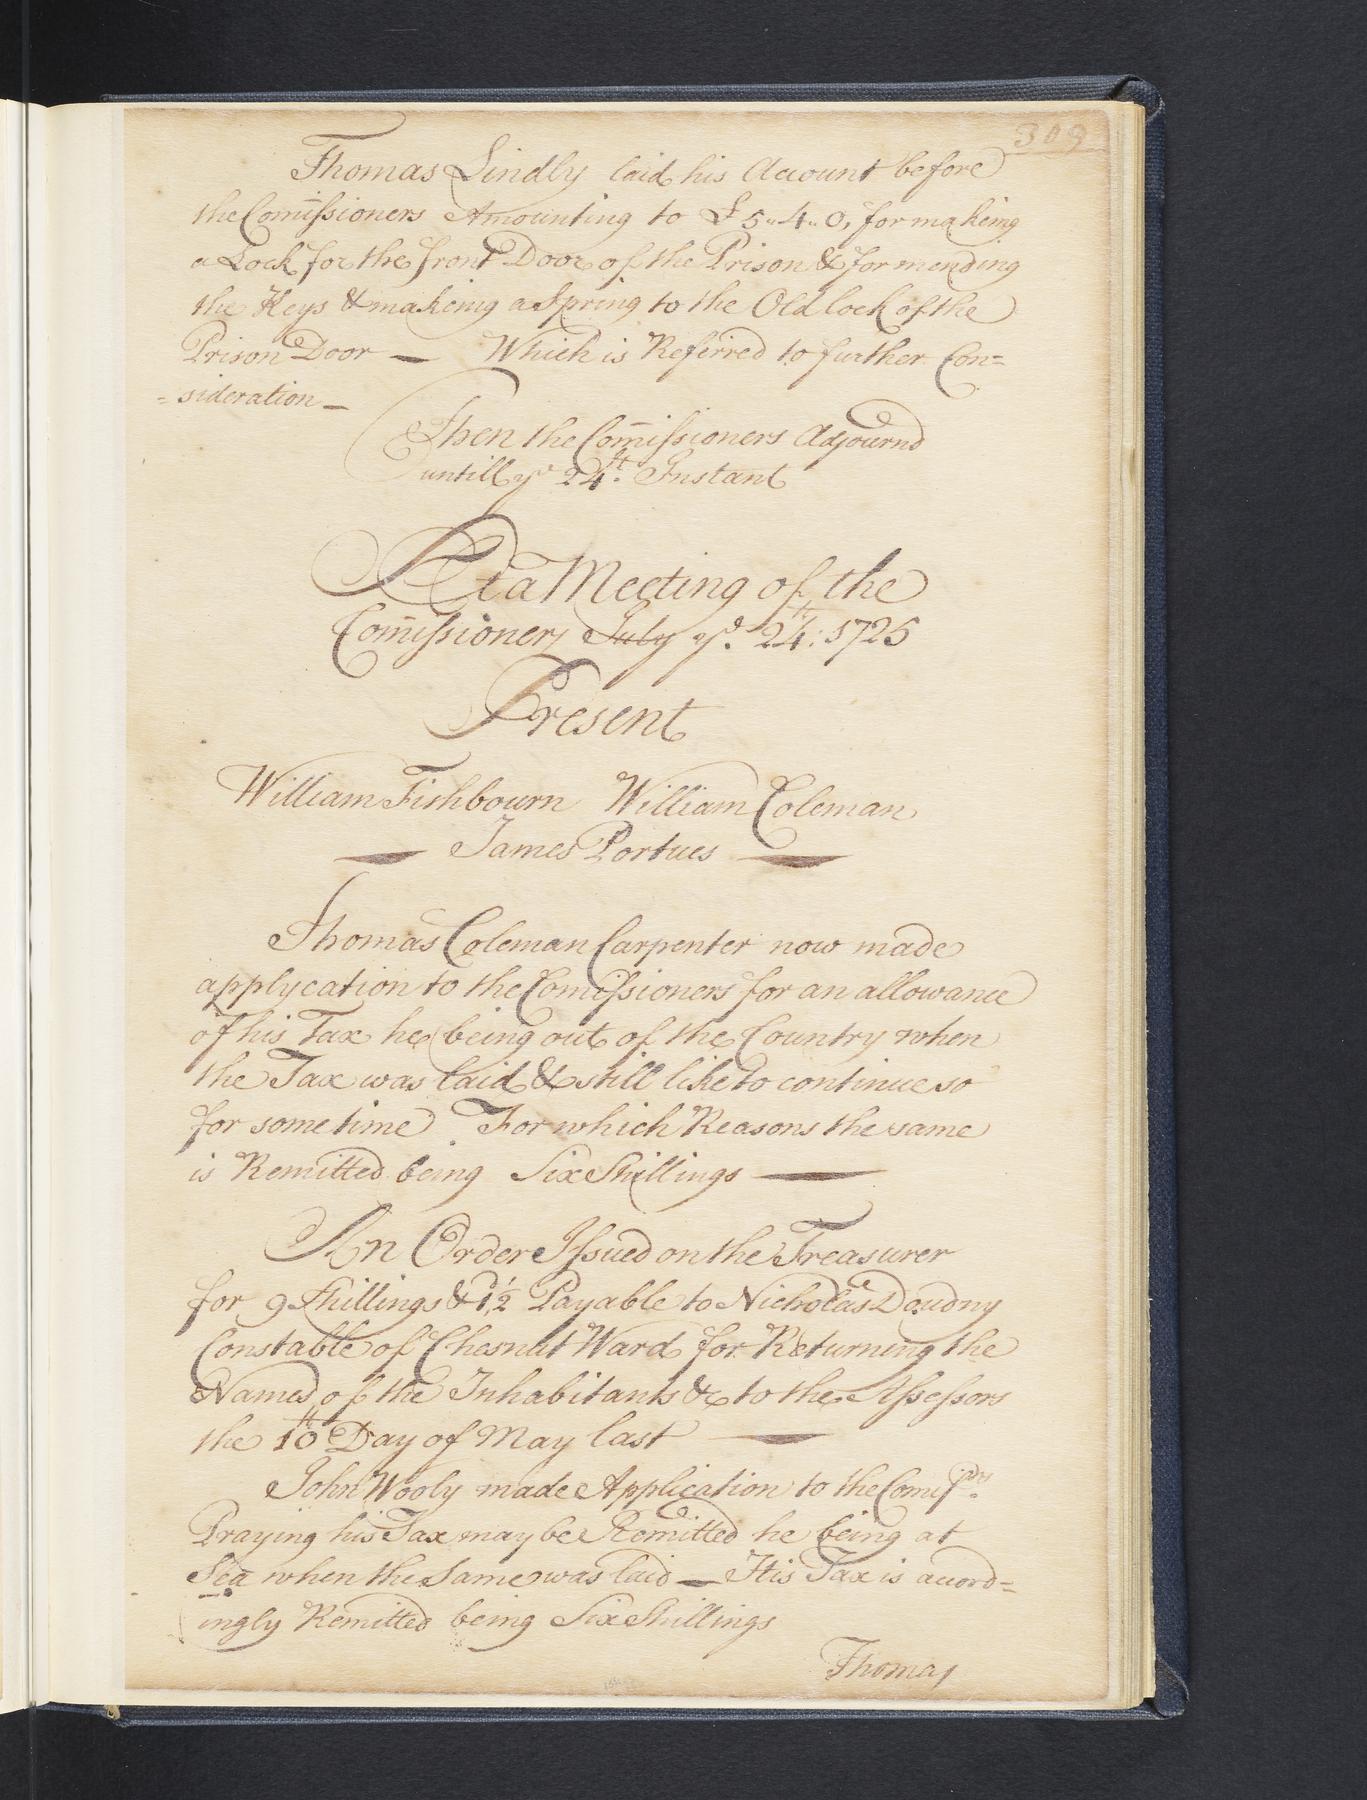 309
Thomas Lindly laid his Account before
the Com̄issioners Amounting to £5"4"0, for making
a Lock for the front Door of the Prison & for mending
the Keys & making a Spring to the Old lock of the
Prison Door — Which is Referred to further Con=
=sideration —
Then the Com̄issioners Adjournd
untill yᵉ 24ᵗʰ. Instant
At a Meeting of the
Com̄issioners July yᵉ. 24ᵗʰ: 1725
Present
William Fishbourn William Coleman
— James Portues —
Thomas Coleman Carpenter now made
applycation to the Com̄issioners for an allowance
of his Tax he being out of the Country when
the Tax was laid & still like to continue so
for some time. For which Reasons the same
is Remitted being Six Shillings —
An Order Issued on the Treasurer
for 9 Shillings & 1ᵈ½ Payable to Nicholas Doudny
Constable of Chesnut Ward for Returning the
Names of the Inhabitants &c to the Assessors
the 10ᵗʰ Day of May last —
John Wooly made Application to the Comissⁿʳˢ.
Praying his Tax may be Remitted he being at
Sea when the Same was laid — His Tax is accord=
ingly Remitted being Six Shillings
Thomas